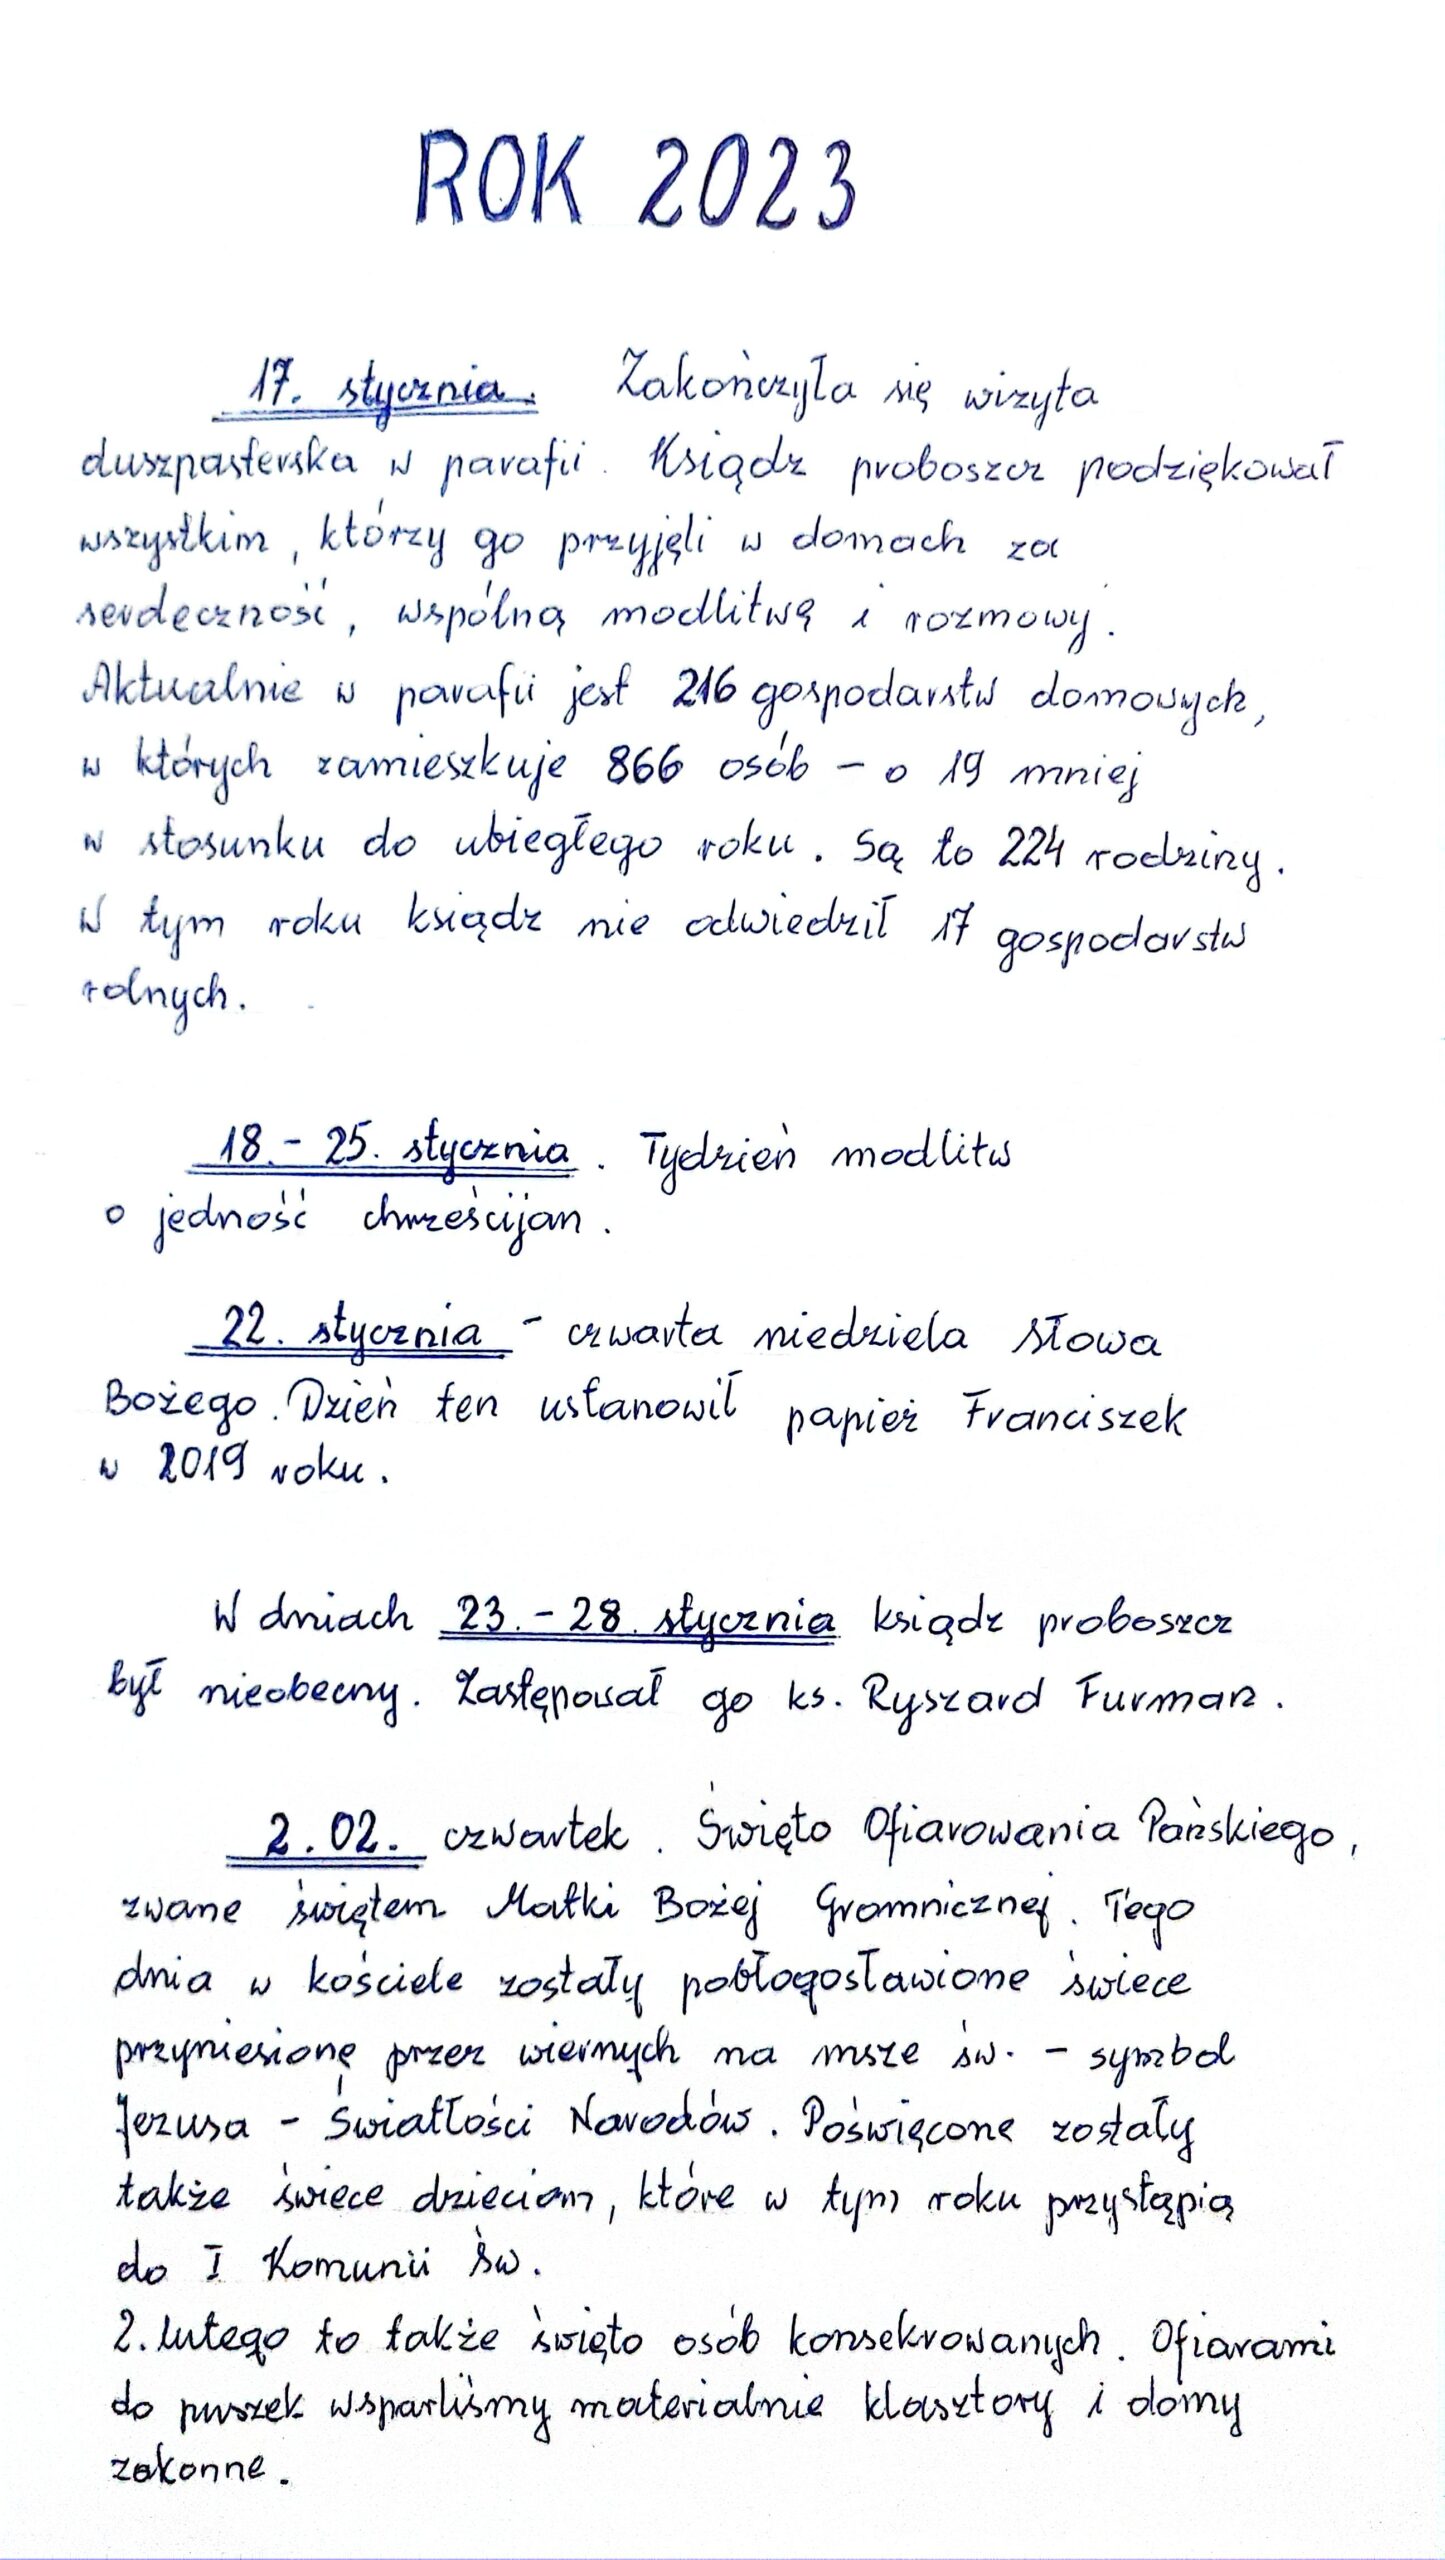 ROK 2023
17. stycznia. Zakończyła się wizyta
duszpasterska w parafii. Ksiądz proboszcz podziękował
wszystkim, którzy go przyjęli w domach za
serdeczność, wspólną modlitwę i rozmowy.
Aktualnie w parafii jest 216 gospodarstw domowych,
w których zamieszkuje 866 osób – o 19 mniej
w stosunku do ubiegłego roku. Są to 224 rodziny.
W tym roku ksiądz nie odwiedził 17 gospodarstw
rolnych.
18. – 25. stycznia. Tydzień modlitw
o jedność chrześcijan.
22. stycznia – czwarta niedziela Słowa
Bożego. Dzień ten ustanowił papież Franciszek
w 2019 roku.
W dniach 23. – 28. stycznia ksiądz proboszcz
był nieobecny. Zastępował go ks. Ryszard Furman.
2.02. czwartek. Święto Ofiarowania Pańskiego,
zwane świętem Matki Bożej Gromnicznej. Tego
dnia w kościele zostały pobłogosławione świece
przyniesione przez wiernych na msze św. – symbol
Jezusa – Światłości Narodów. Poświęcone zostały
także świece dzieciom, które w tym roku przystąpią
do I Komunii Św.
2. lutego to także święto osób konsekrowanych. Ofiarami
do puszek wsparliśmy materialnie klasztory i domy
zakonne.